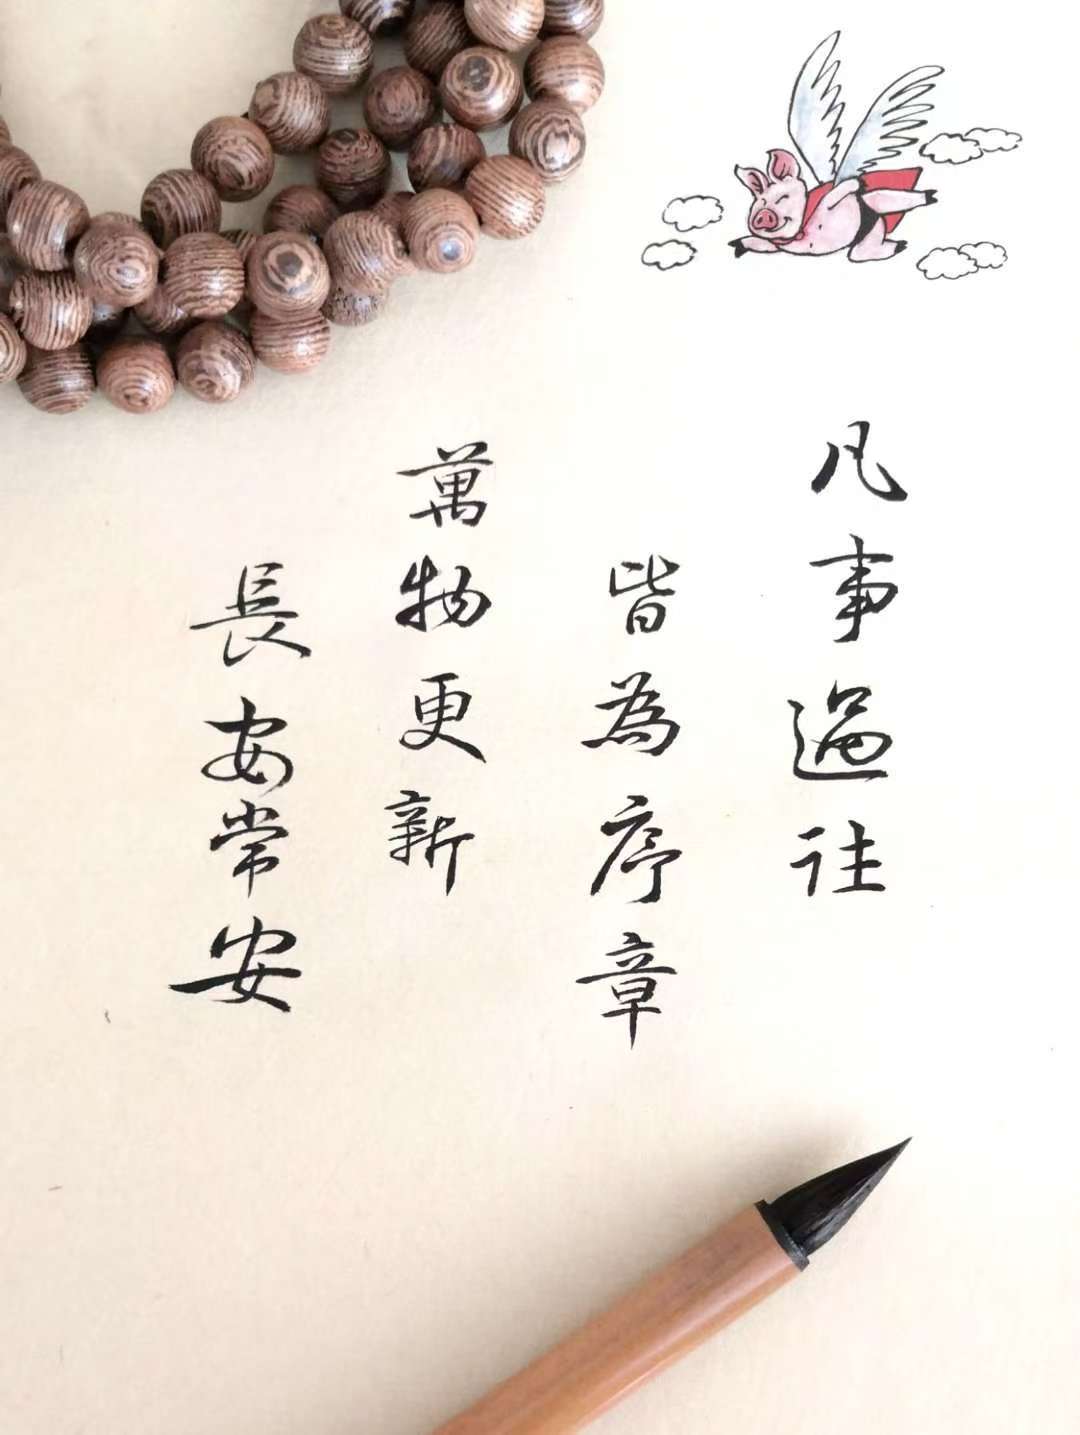 凡事過往
皆為序章
萬物更新
長安常安